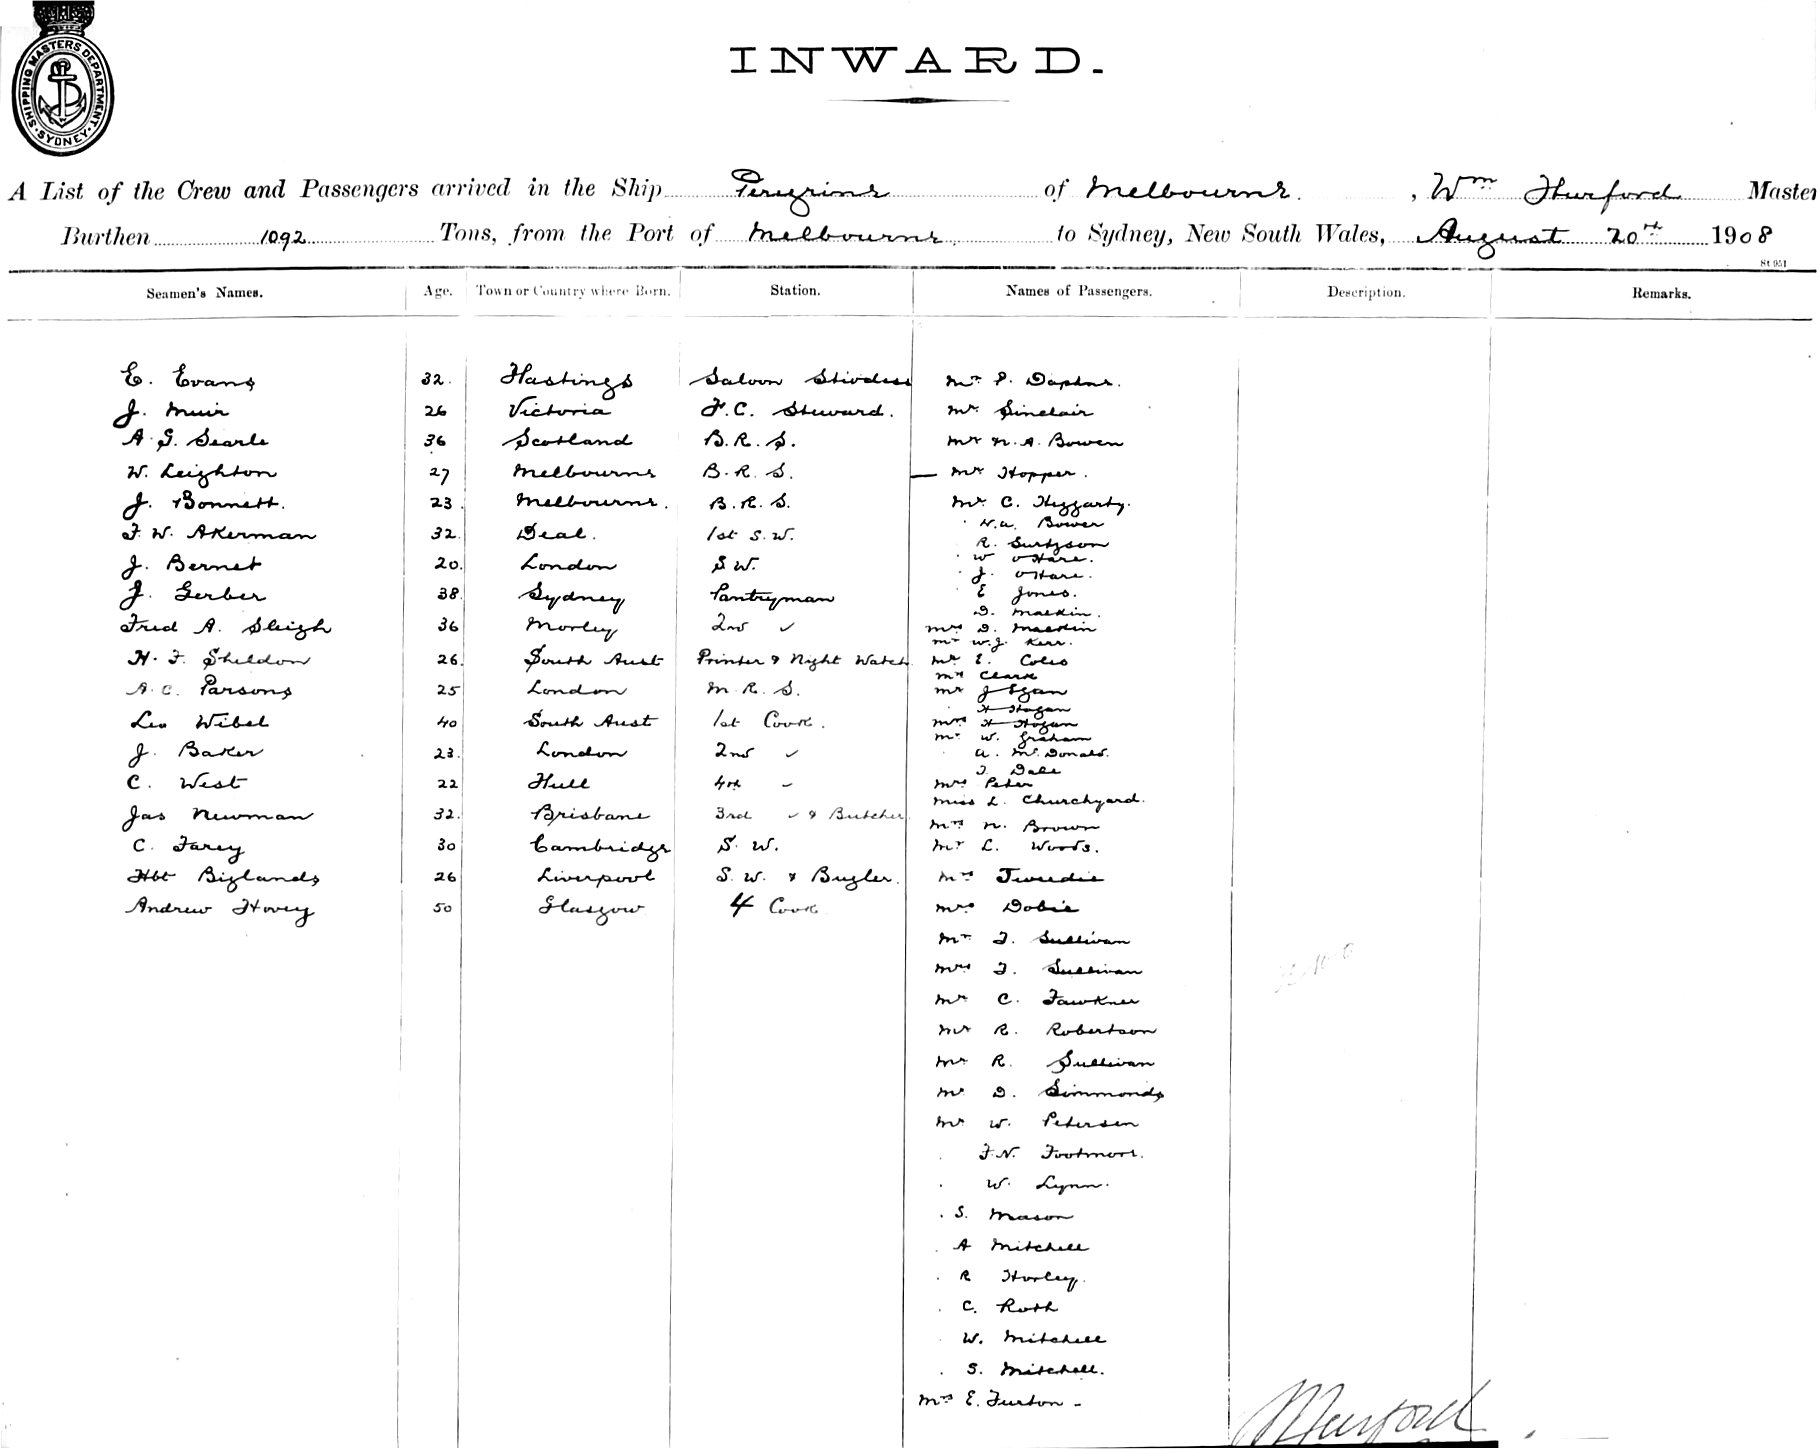 SHIPPING MASTERS DEPARTMENT
SYDNEY
INWARD.
A List of the Crew and Passengers arrived in the Ship Peregrine of Melbourne. , Wm Hurford Master
Burthen 1092 Tons, from the Port of Melbourne. to Sydney, New South Wales, August 20th 1908
St 951
Seamen's Names. Age. Town or Country where Born. Station. Names of Passengers. Description. Remarks.
E. Evans 32. Hastings Saloon Mr P. Daphne.
J. Muir 26 Victoria F.C. Steward. Mr Sinclair
A. G. Searle 36 Scotland B.R.S. Mr N.A. Bowen
W. Leighton 27 Melbourne B.R.S. Mr Hopper.
J. Bonnett. 23. Melbourne. B.R.S. Mr C. Heggarty.
N.A. Bower
F. W. Akerman 32. Deal. 1st S.W. R.
W OHare.
J. Bernet 20. London S.W. J. OHare.
J. Gerber 38. Sydney Pantryman E Jones.
D. Mackin.
Fred A. Sleigh 36 Morley 2nd " Mrs D. Mackin
Mr W.J. Kerr.
H. F. Sheldon 26. South Aust Printer & Night Watch Mr E. Coles
Mr Clark
A. C. Parsons 25 London M.R.S. Mr J Egan
H Hogan
Leo Wibel 40 South Aust 1st Cook. Mrs H Hogan
Mr W. Graham
J. Baker 23. London 2nd " A. McDonald.
T. Dale
C. West 22 Hull 4th " Mrs Peter
Miss L. Churchyard.
Jas Newman 32. Brisbane 3rd " & Butcher Mrs N. Brown
C. Farey 30 Cambridge S. W. Mr L. Woods.
Hbt Biglands 26 Liverpool S. W. & Bugler. Mrs Tweedie
Andrew Hovey 50 Glasgow 4 Cook Mrs Dobie
Mr F. Sullivan
Mrs F. Sullivan
Mr C. Fawkner
Mr R. Robertson
Mr R. Sullivan
Mr D. Simmonds
Mr W. Petersen
F.N. Footmore.
W. Lynn.
S. Mason
A Mitchell
R Horley.
C. Roth
W. Mitchell
S. Mitchell.
Mrs E. Furton -
WHurford